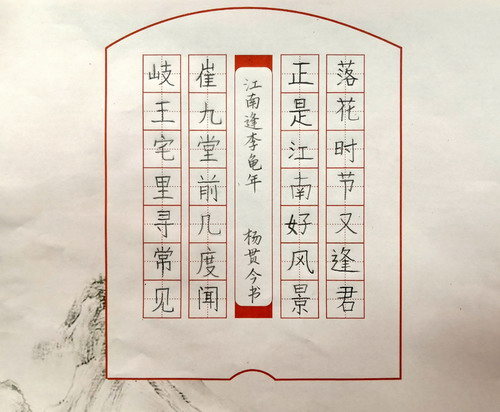 岐王宅里寻常见
崔九堂前几度闻
江南逢李龟年 杨贯今书
正是江南好风景
落花时节又逢君